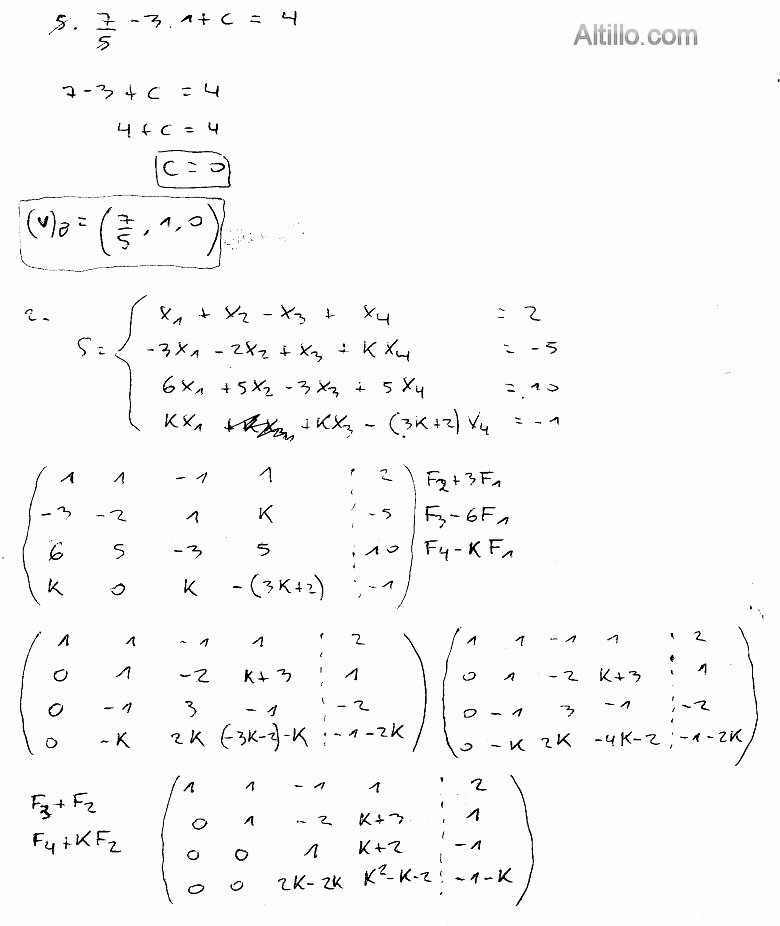 5. 7/5 - 3 . 1 + C = 4
Altillo.com
7 - 3 + C = 4
4 + C = 4
C = 0
(v)B = (7/5, 1, 0)
2.
S = { x1 + x2 - x3 + x4 = 2
-3x1 - 2x2 + x3 + Kx4 = -5
6x1 + 5x2 - 3x3 + 5x4 = 10
Kx1 + Kx3 - (3K+2) x4 = -1
( 1 1 -1 1 ⋮ 2 ) F2 + 3F1
-3 -2 1 K ⋮ -5 F3 - 6F1
6 5 -3 5 ⋮ 10 F4 - K F1
K 0 K -(3K+2) ⋮ -1
( 1 1 -1 1 ⋮ 2 )
0 1 -2 K+3 ⋮ 1
0 -1 3 -1 ⋮ -2
0 -K 2K (-3K-2)-K ⋮ -1-2K
( 1 1 -1 1 ⋮ 2 )
0 1 -2 K+3 ⋮ 1
0 -1 3 -1 ⋮ -2
0 -K 2K -4K-2 ⋮ -1-2K
F3 + F2
F4 + KF2
( 1 1 -1 1 ⋮ 2 )
0 1 -2 K+3 ⋮ 1
0 0 1 K+2 ⋮ -1
0 0 2K-2K K²-K-2 ⋮ -1-K